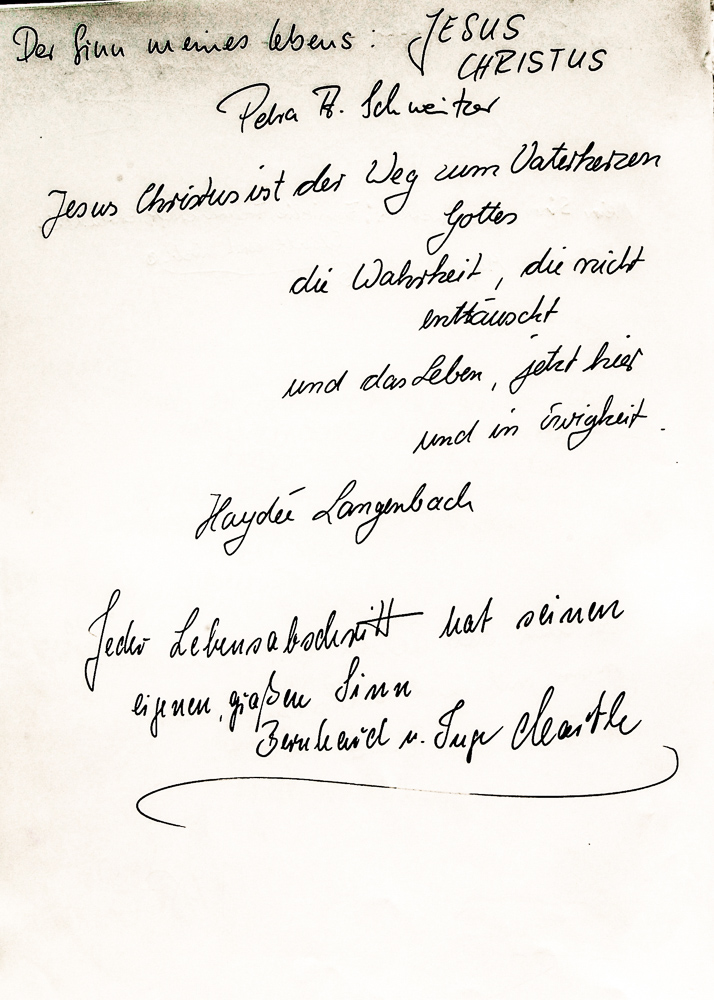 Der Sinn meines Lebens: JESUS
CHRISTUS
Petra Schweitzer
Jesus Christus ist der Weg zum Vaterherzen
Gottes
die Wahrheit, die nicht
enttäuscht
und das Leben, jetzt hier
und in Ewigkeit.
Haydée Langenbach
Jeder Lebensabschnitt hat seinen
eigenen, großen Sinn
Bernhard u. Inge